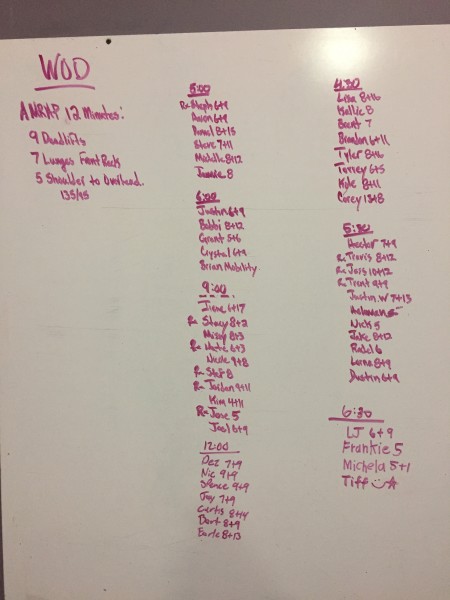 WOD
AMRAP 12 Minutes:
9 Deadlifts
7 Lunges Front Rack
5 Shoulder to Overhead
135/95
5:00
Rx Steph 6+9
6+9
8+15
Steve 7+11
Michelle 8+12
8
6:00
Justin 6+9
Bobbi 8+12
Grant 5+6
Crystal 6+9
Brian Mobility
9:00
6+17
Rx Stacy 8+2
Missy 8+3
Rx 6+3
Nicole 9+8
Rx 8
Rx Jordan 9+11
Kim 4+11
Rx Jose 5
Joel 6+9
12:00
Dez 7+9
Nic 9+9
Spence 9+9
Jay 7+9
Curtis 8+14
Bart 8+9
Earle 8+13
4:30
Lisa 8+16
Kallie 8
Brent 7
Brandon 6+11
Tyler 8+16
Torrey 6+5
Kyle 8+11
Corey 13+8
5:30
Hector 7+9
Rx Travis 8+12
Rx Jass 10+12
Rx Trent 9+9
Justin W 7+13
Nick 5
Jake 8+12
6
Lorna 8+9
Dustin 6+9
6:30
LJ 6+9
Frankie 5
Michela 5+1
Tiff